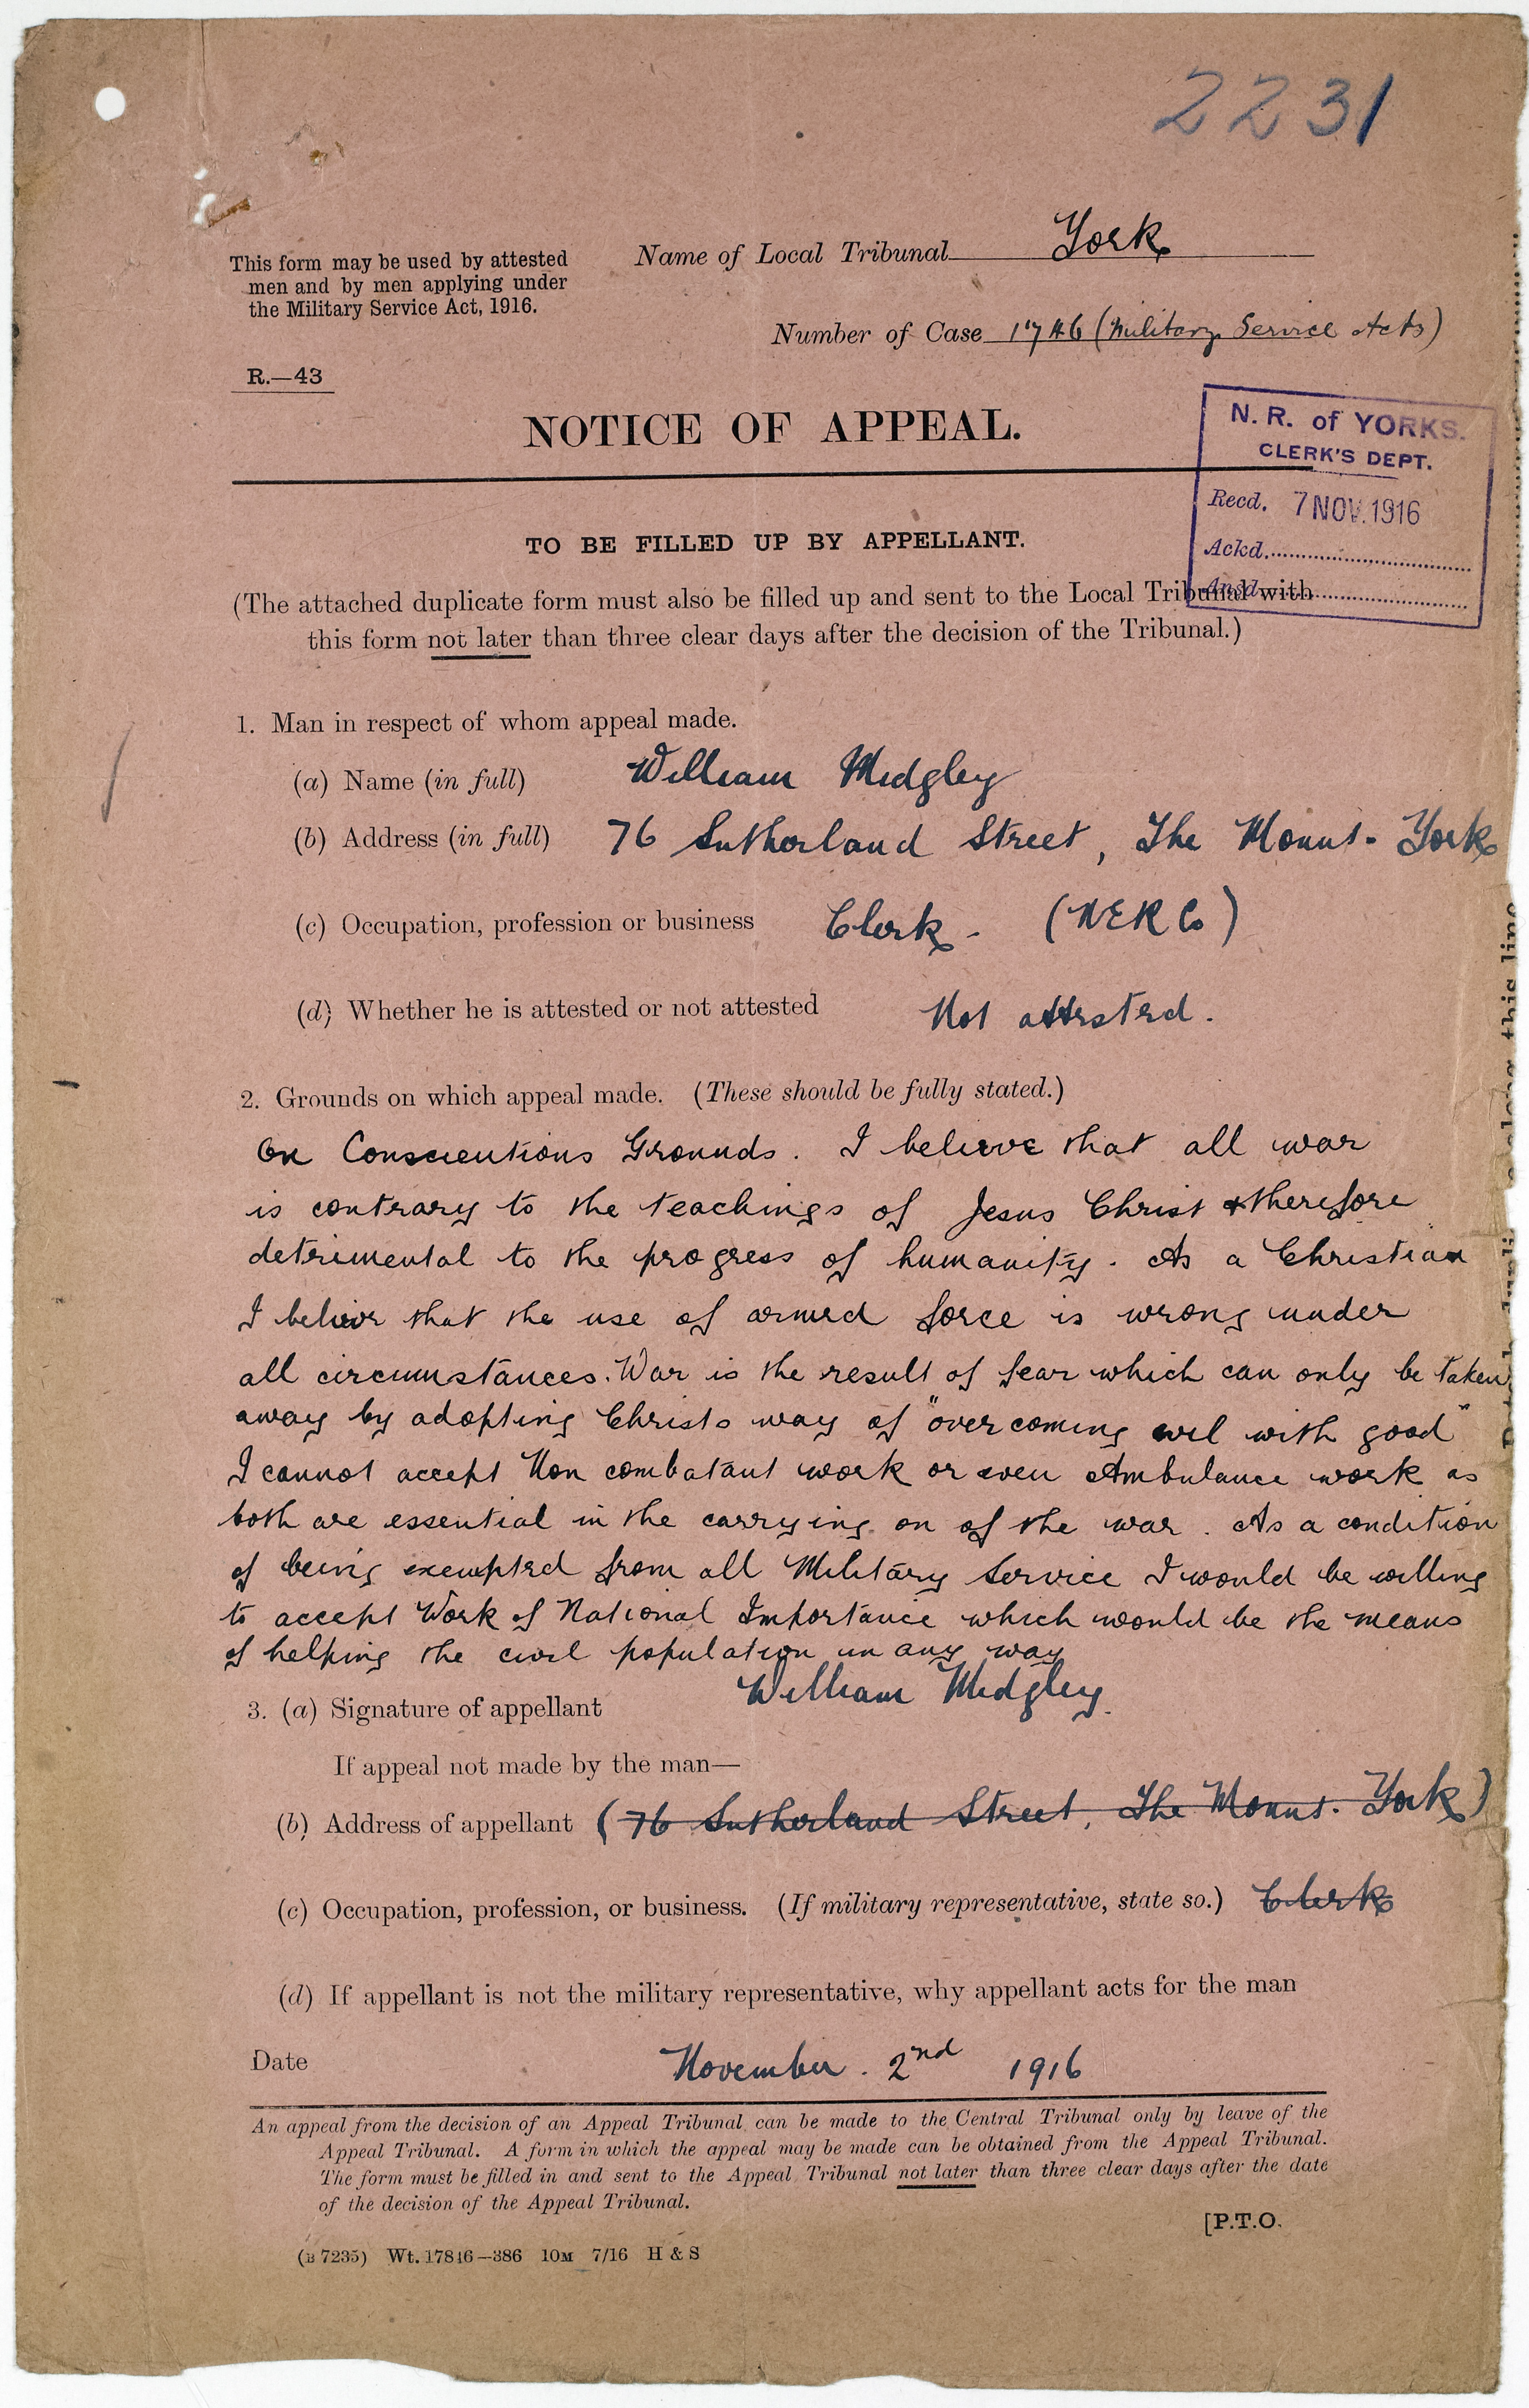 2231
This form may be used by attested
men and by men applying under
the Military Service Act, 1916.
Name of Local Tribunal York
Number of Case 1746 (Military Service Acts)
R.—43
NOTICE OF APPEAL.
N. R. of YORKS.
CLERK'S DEPT.
Recd. 7 NOV. 1916
Ackd.
Ansd.
TO BE FILLED UP BY APPELLANT.
(The attached duplicate form must also be filled up and sent to the Local Tribunal with
this form not later than three clear days after the decision of the Tribunal.)
1. Man in respect of whom appeal made.
(a) Name (in full) William Midgley
(b) Address (in full) 76 Sutherland Street, The Mount - York
(c) Occupation, profession or business Clerk - (NER Co)
(d) Whether he is attested or not attested Not attested.
2. Grounds on which appeal made. (These should be fully stated.)
On Conscientious Grounds. I believe that all war
is contrary to the teachings of Jesus Christ & therefore
detrimental to the progress of humanity. As a Christian
I believe that the use of armed force is wrong under
all circumstances. War is the result of fear which can only be taken
away by adopting Christs way of "overcoming evil with good"
I cannot accept Non combatant work or even Ambulance work as
both are essential in the carrying on of the war. As a condition
of being exempted from all Military Service I would be willing
to accept Work of National Importance which would be the means
of helping the civil population in any way
3. (a) Signature of appellant William Midgley.
If appeal not made by the man—
(b) Address of appellant (76 Sutherland Street, The Mount - York)
(c) Occupation, profession, or business. (If military representative, state so.) Clerk
(d) If appellant is not the military representative, why appellant acts for the man
Date November. 2nd 1916
An appeal from the decision of an Appeal Tribunal can be made to the Central Tribunal only by leave of the
Appeal Tribunal. A form in which the appeal may be made can be obtained from the Appeal Tribunal.
The form must be filled in and sent to the Appeal Tribunal not later than three clear days after the date
of the decision of the Appeal Tribunal.
[P.T.O.
(B 7235) Wt. 17846—386 10M 7/16 H & S
along this line